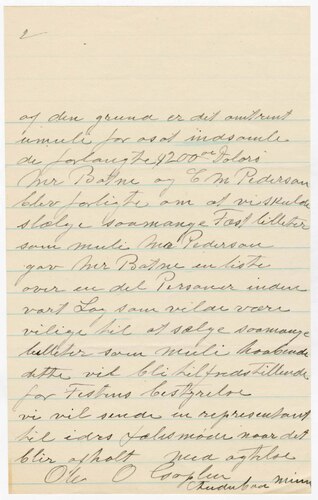 2
af den grund er det omtrent
umuli for osot indsamle
de forlangte $200 00 Dolors
Mr Botne og E M Pederson
blev forliste om at vi skulde
slælge saamange Fest billeter
som mule Mr Pederson
gav Mr Botne en liste
over en del Personer inden
vort Lag som vilde være
vilige til at sælge saamange
billeter som muli haabende
dette vil bli tilfredstillende
for Festens bestyrelse
vi vil sende en representant
til idrs fælusmøde naar det
blir afholt med agtelse
Ole O